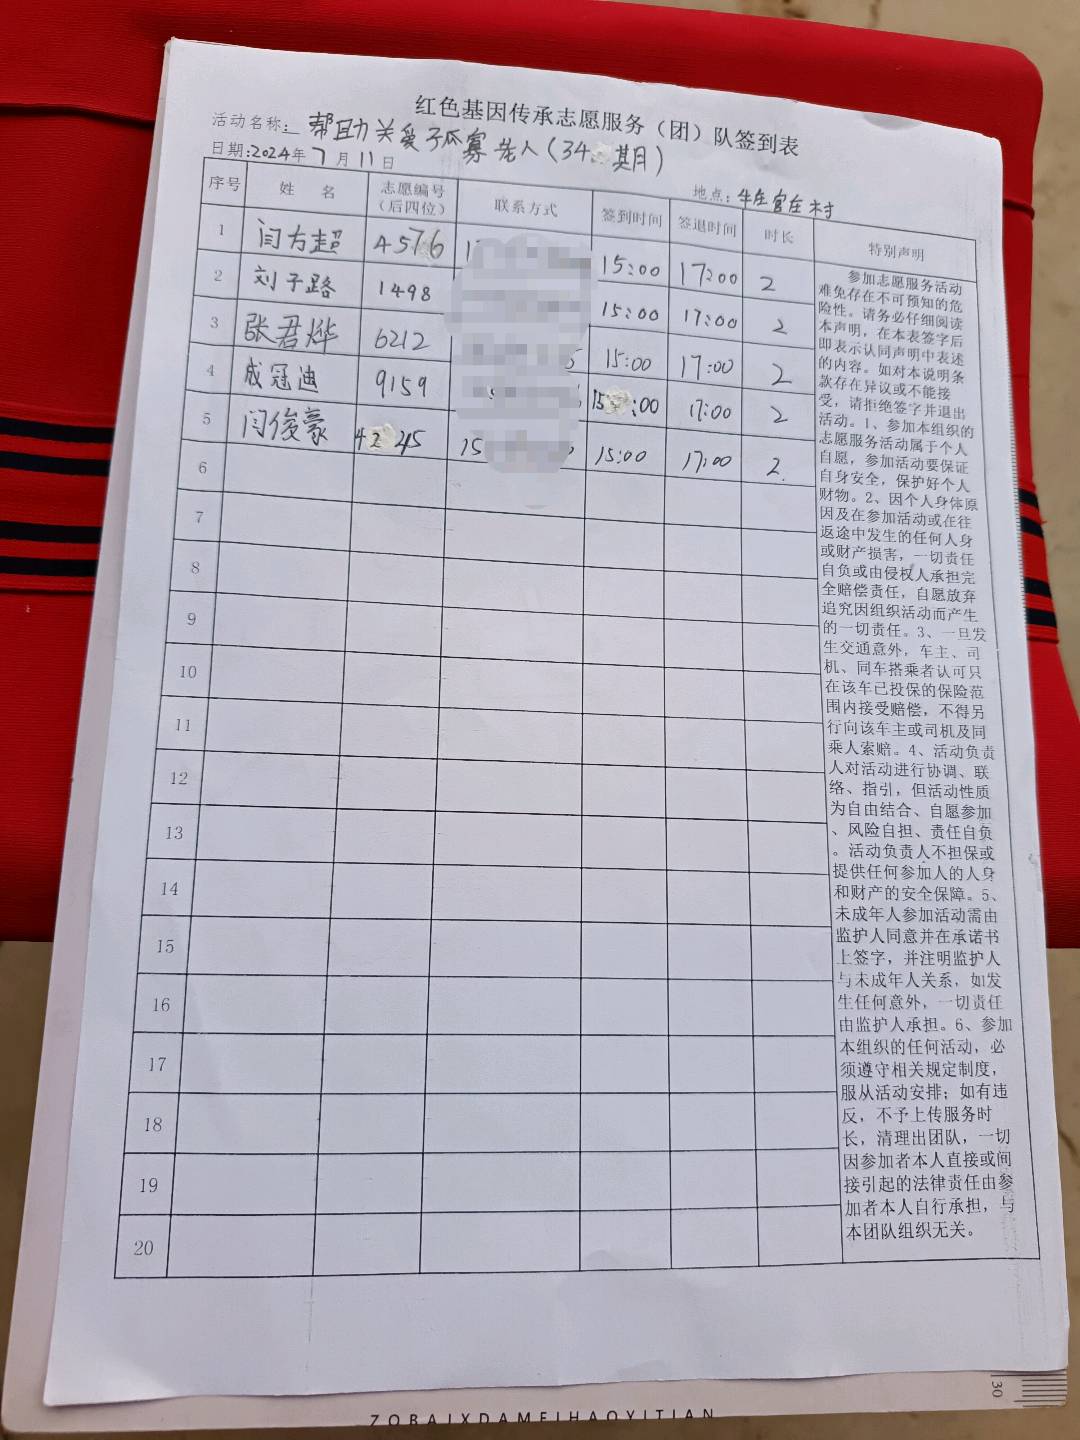 红色基因传承志愿服务（团）队签到表
活动名称：帮助关爱孑瓜寡老人（34期）
日期：2024年7月11日
地点：牛庄官庄村
序号 姓名 志愿编号（后四位） 联系方式 签到时间 签退时间 时长 特别声明
1 闫方超 4576 15:00 17:00 2
2 刘子路 1498 15:00 17:00 2
3 张君烨 6212 15:00 17:00 2
4 成冠迪 9159 15:00 17:00 2
5 闫俊豪 4245 15 15:00 17:00 2
6
7
8
9
10
11
12
13
14
15
16
17
18
19
20
参加志愿服务活动
难免存在不可预知的危
险性。请务必仔细阅读
本声明，在本表签字后
即表示认同声明中表述
的内容。如对本说明条
款存在异议或不能接
受，请拒绝签字并退出
活动。1、参加本组织的
志愿服务活动属于个人
自愿，参加活动要保证
自身安全，保护好个人
财物。2、因个人身体原
因及在参加活动或在往
返途中发生的任何人身
或财产损害，一切责任
自负或由侵权人承担完
全赔偿责任，自愿放弃
追究因组织活动而产生
的一切责任。3、一旦发
生交通意外，车主、司
机、同车搭乘者认可只
在该车已投保的保险范
围内接受赔偿，不得另
行向该车主或司机及同
乘人索赔。4、活动负责
人对活动进行协调、联
络、指引，但活动性质
为自由结合、自愿参加
、风险自担、责任自负
。活动负责人不担保或
提供任何参加人的人身
和财产的安全保障。5、
未成年人参加活动需由
监护人同意并在承诺书
上签字，并注明监护人
与未成年人关系，如发
生任何意外，一切责任
由监护人承担。6、参加
本组织的任何活动，必
须遵守相关规定制度，
服从活动安排；如有违
反，不予上传服务时
长，清理出团队，一切
因参加者本人直接或间
接引起的法律责任由参
加者本人自行承担，与
本团队组织无关。
30
ZOBAIXDAMEIHAOYITIAN